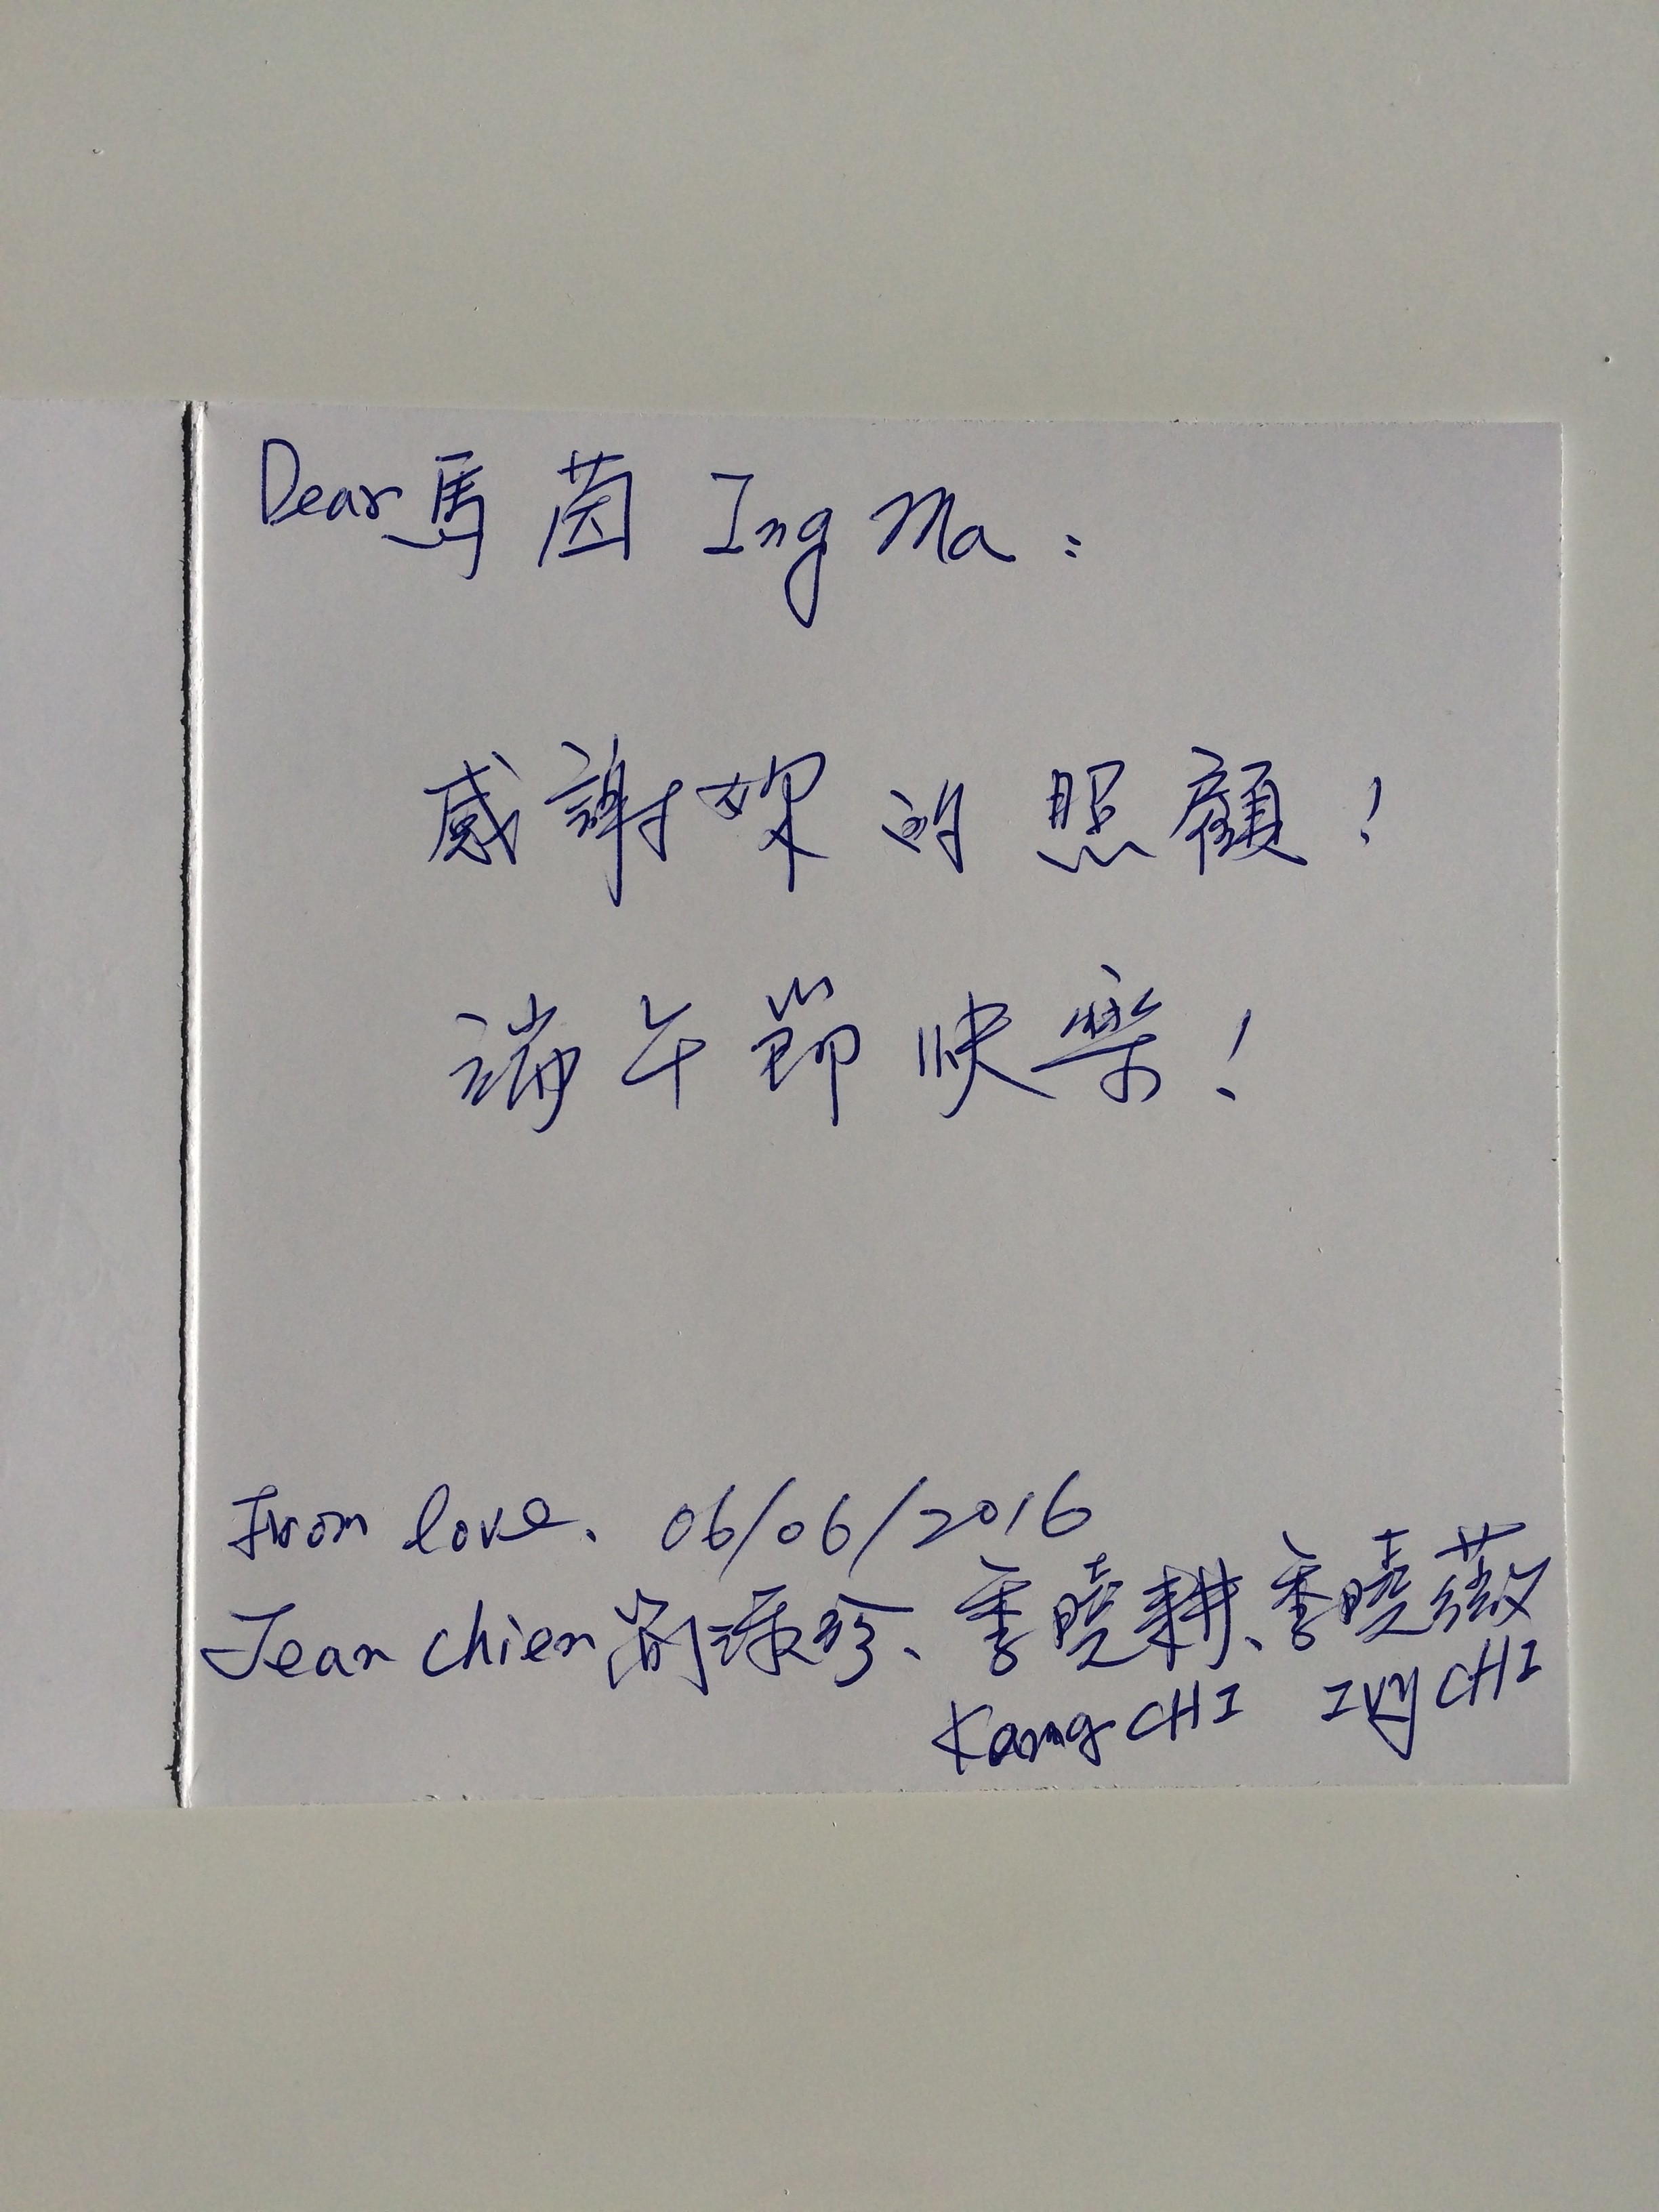 Dear 馬茵 Ing Ma:
感謝妳的照顧!
端午節快樂!
From love. 06/06/2016
Jean Chien 簡淑珍、季曉耕、季曉薇
Kang CHI Ivy CHI